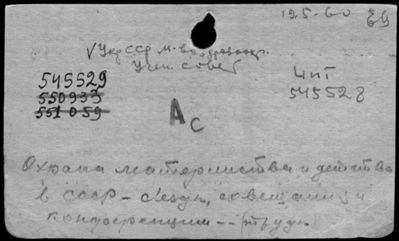 125-60 Ец
√ УкрССР М-во здравоохр.
Учен. совет
545529
550933
551059
Ас
Чит
545528
Охрана материнства и детства
в СССР - съезды, совещания и
конференции -- труды